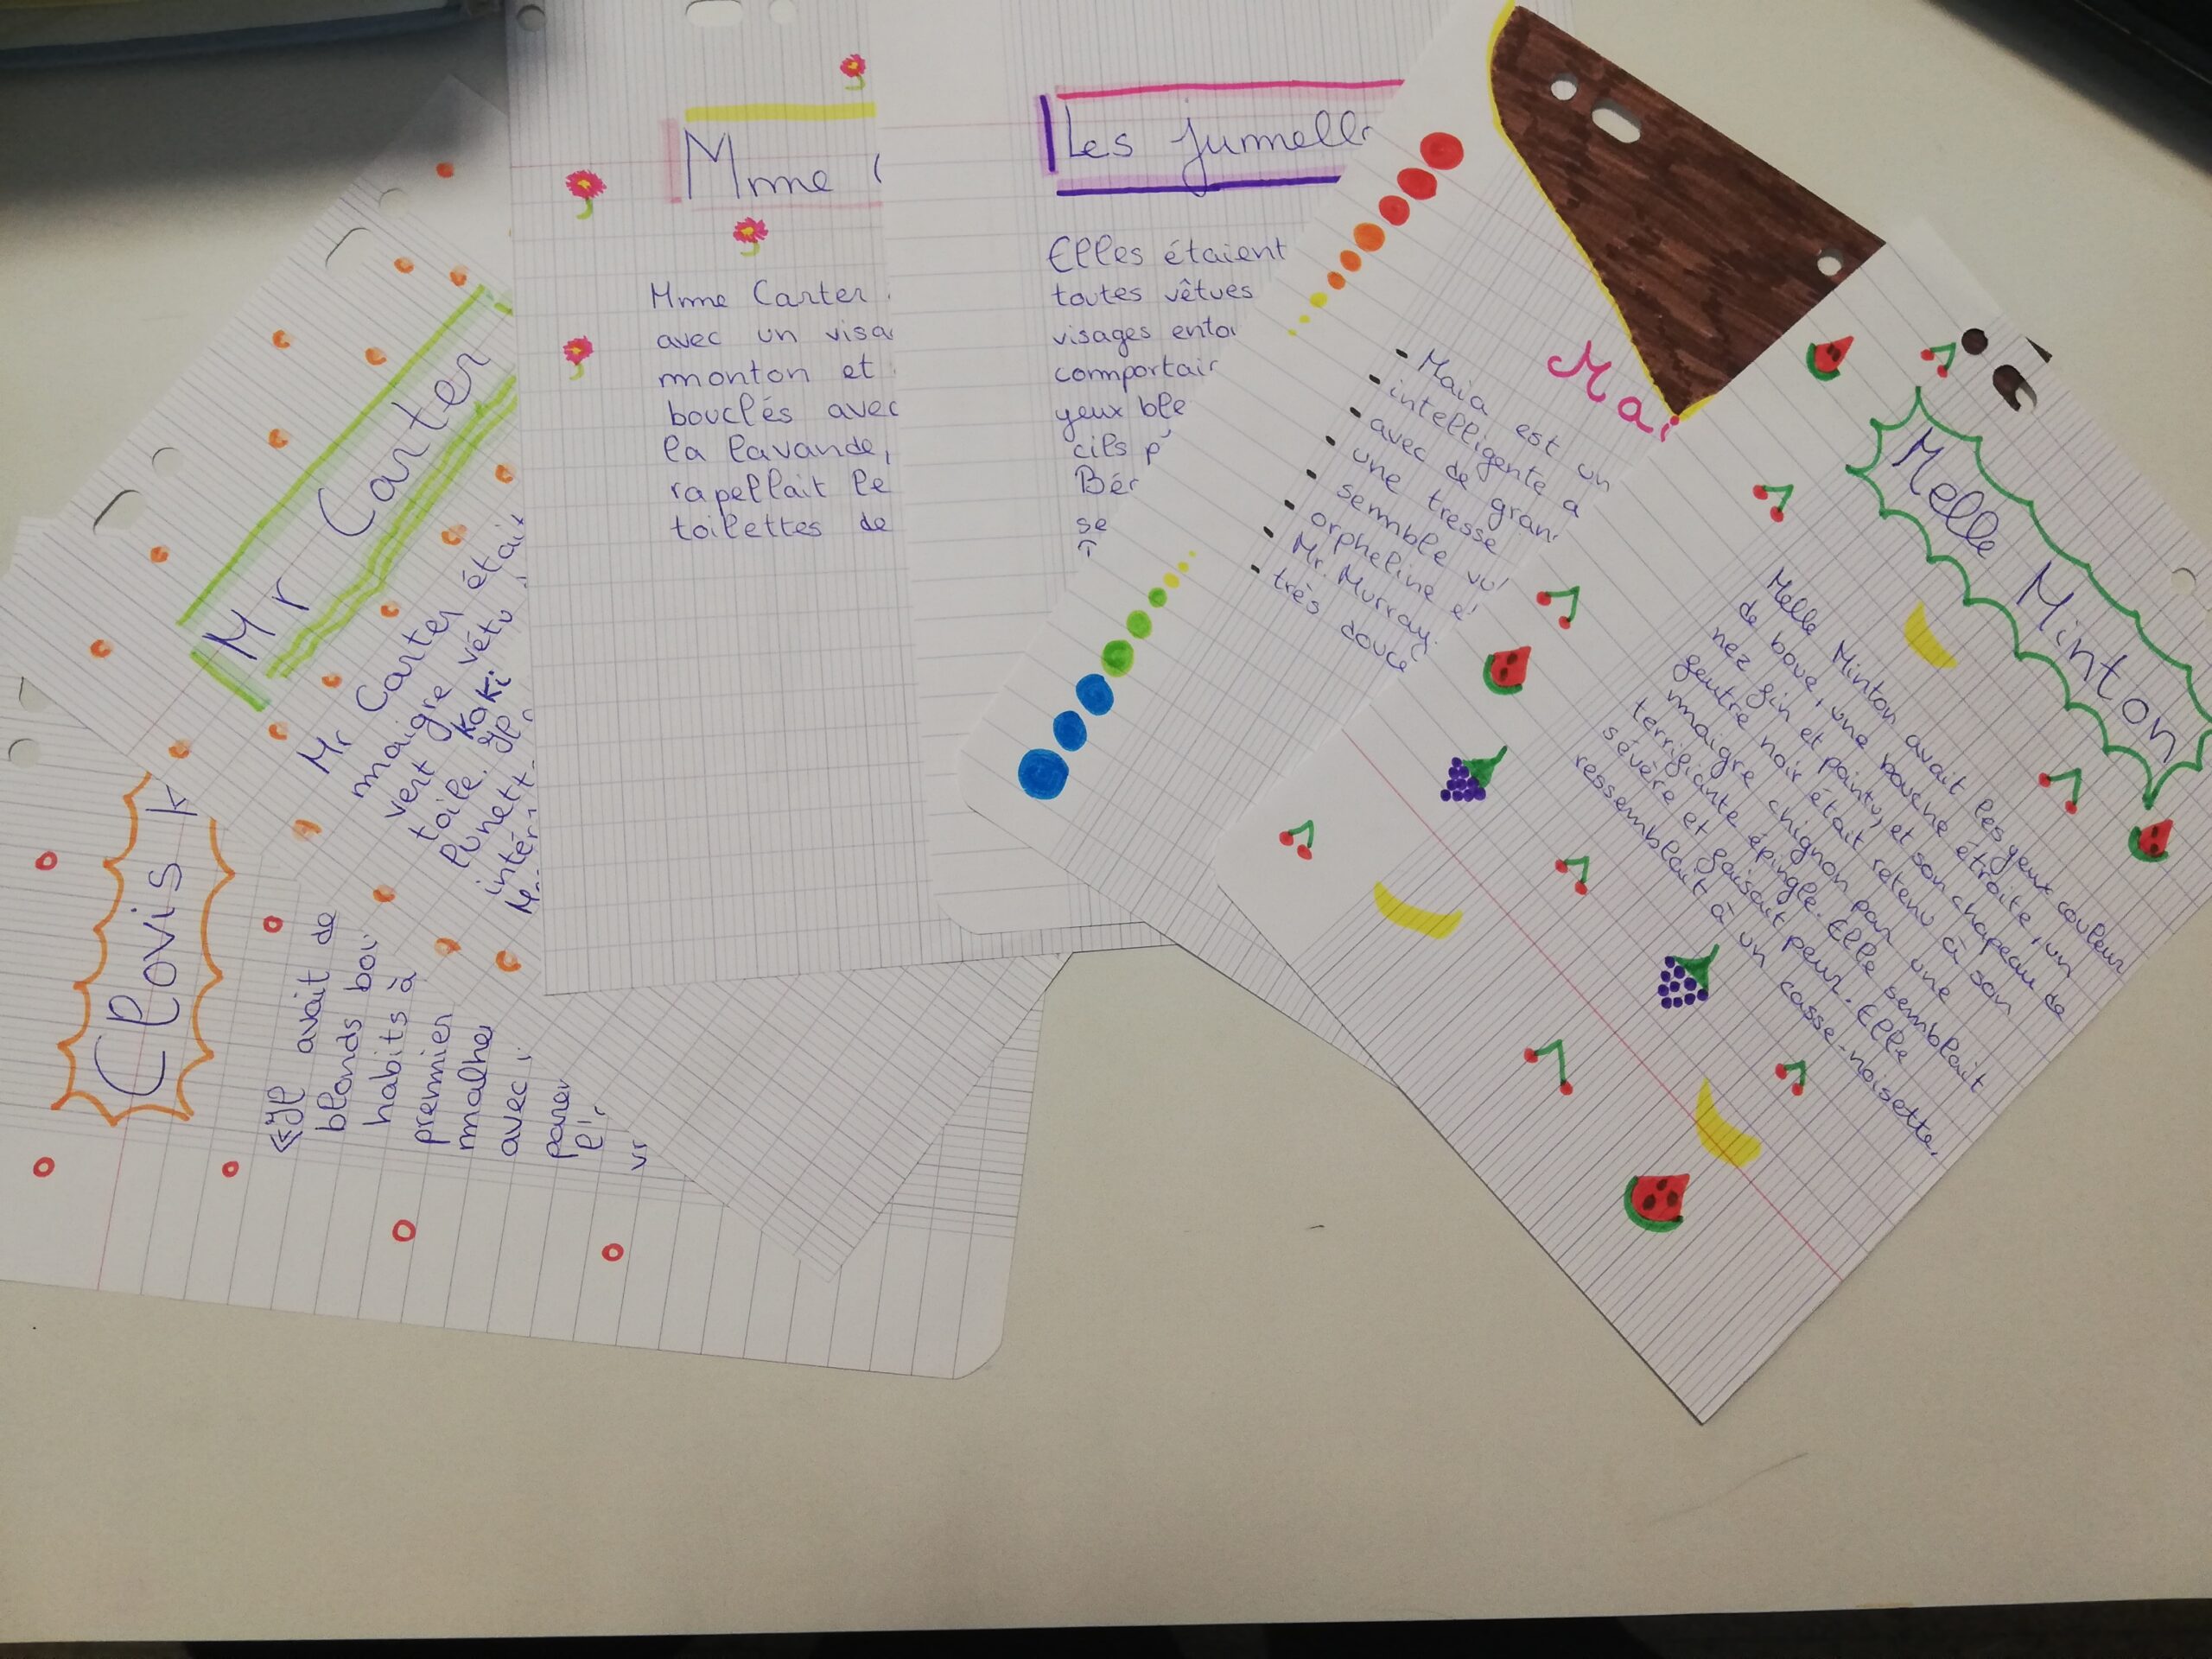 Clovis K
«Il avait de
blonds bou
habits à
premier
malhe
avec
paren
l'
Mr Carter
Mr Carter était
maigre vêtu
vert kaki
toile. Il
lunett
intér
Mme C
Mme Carter
avec un visa
monton et
bouclés avec
la lavande,
rapellait le
toilettes de
Les jumelle
Elles étaient
toutes vêtues
visages ento
comportair
yeux ble
cils p
Bér
se
Mai
- Maia est un
- intelligente a
- avec de gran
- une tresse
- semble vu
- orpheline e
- Mr. Murray
- très douce
Melle Minton
Melle Minton avait les yeux couleur
de boue, une bouche étroite, un
nez fin et pointu, et son chapeau de
feutre noir était retenu à son
maigre chignon par une
terrifiante épingle. Elle semblait
sévère et faisait peur. Elle
ressemblait à un casse-noisette.